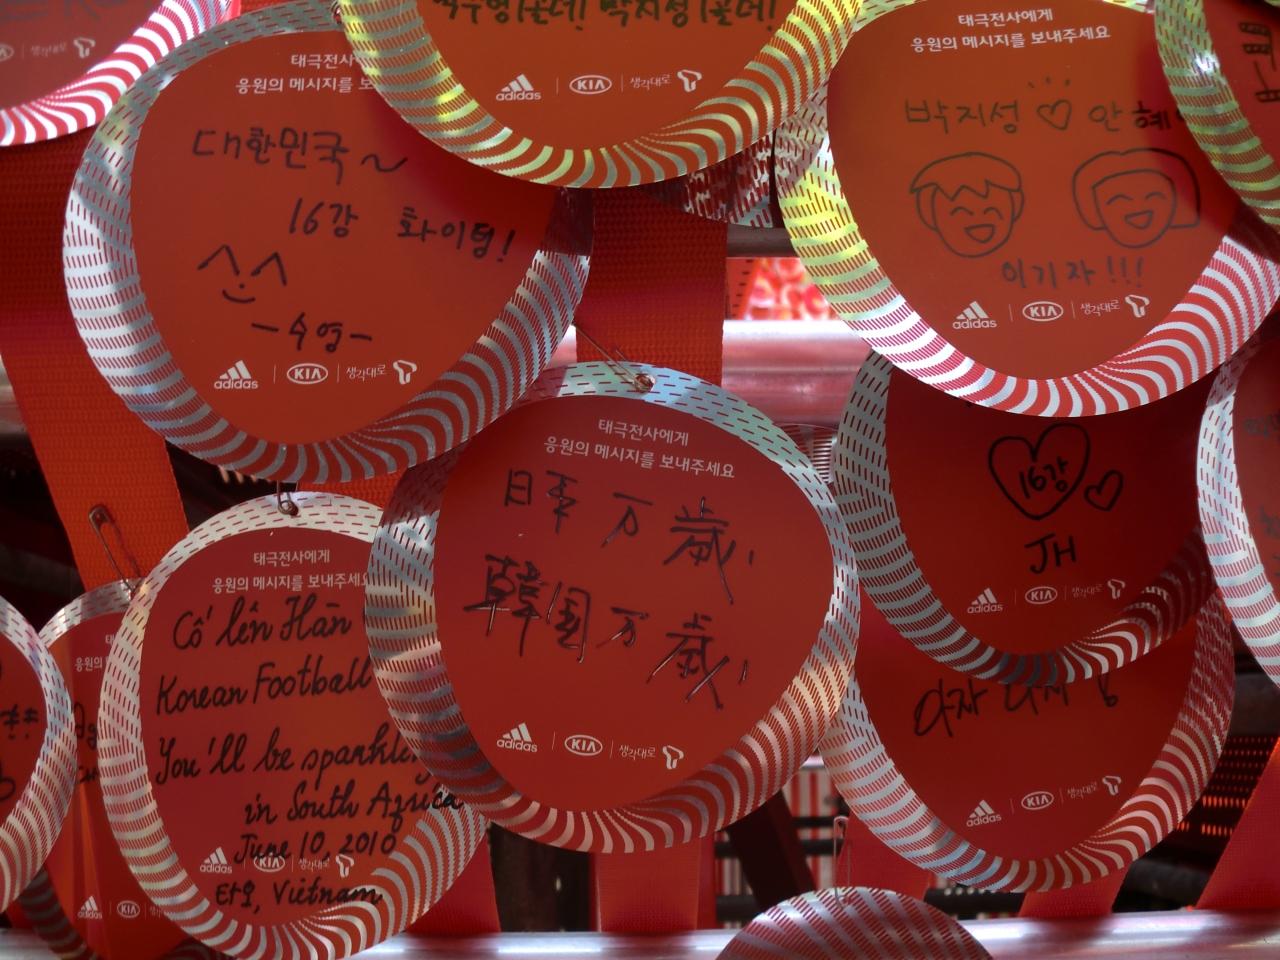 박지성 (골대!
adidas KIA 생각대로 T
태극전사에게
응원의 메시지를 보
대한민국~
16강 화이팅!
-수영-
adidas KIA 생각대로 T
태극전사에게
응원의 메시지를 보내주세요
박지성 ♡ 안혜
이기자!!!
adidas KIA 생각대로 T
태극전사에게
응원의 메시지를 보내주세요
万歳
韓国万歳
adidas KIA 생각대로 T
16강
JH
adidas KIA 생각대로 T
태극전사에게
응원의 메시지를 보내주세요
Cố lên Hàn
Korean Football
You'll be sparkling
in South Africa
June 10, 2010
adidas KIA T
타오, Vietnam
아자
adidas KIA 생각대로 T
응원의
adidas KIA
KIA 생각대로 T